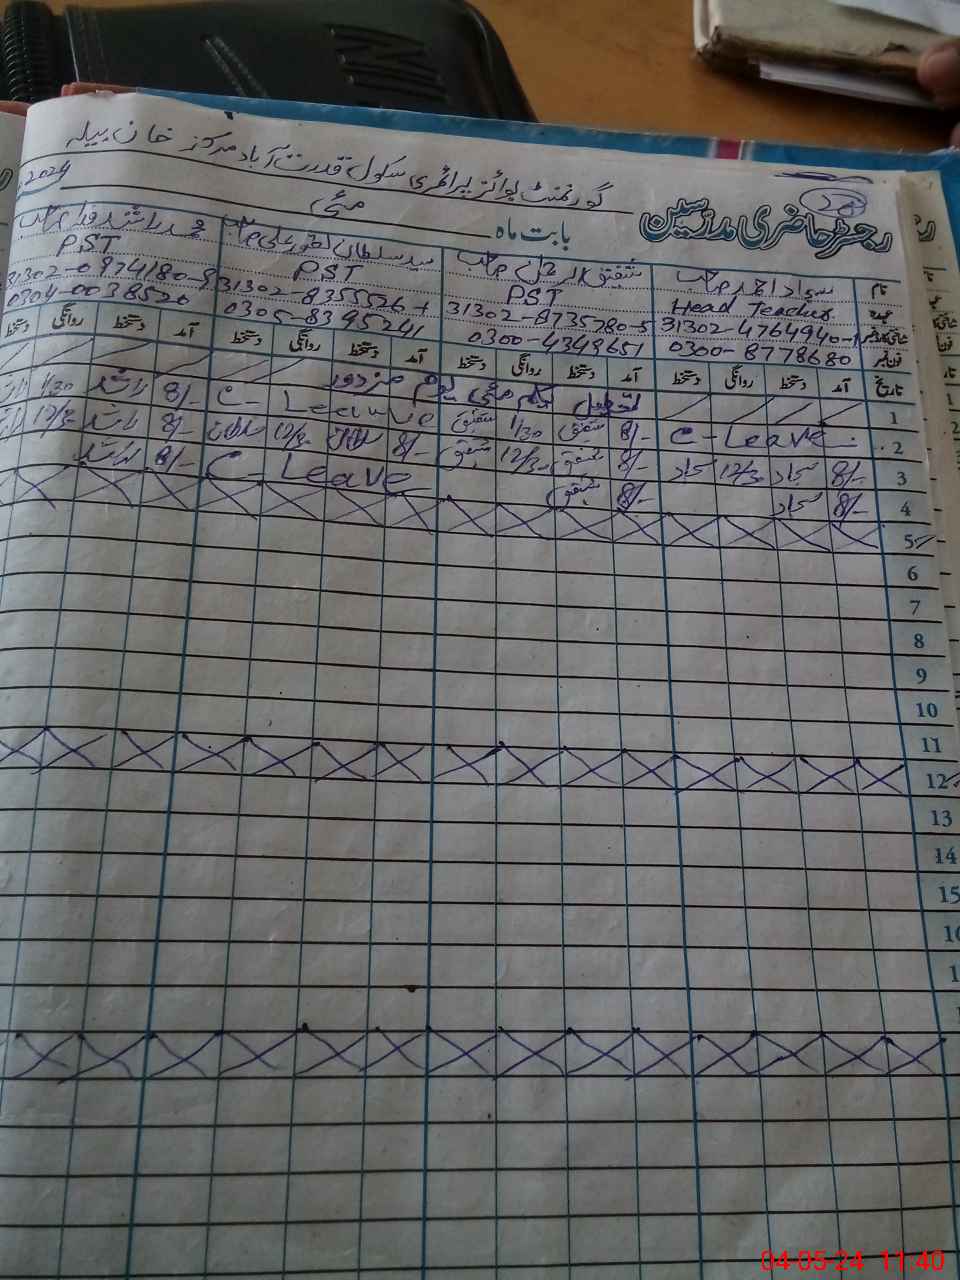 گورنمنٹ بوائز پرائمری سکول قدرت آباد مرکز خان بیلہ
رجسٹر حاضری مدرسین
بابت ماہ مئی 2024
نام
عہدہ
شناختی کارڈ نمبر
فون نمبر
تاریخ
Head Teacher
31302-4764940-1
0300-8778680
شفیق الرحمٰن صاحب
PST
31302-8735780-5
0300-4349651
PST
31302-8355526-1
0305-8395241
PST
31302-0974180-9
0304-0038520
آمد دستخط روانگی دستخط آمد دستخط روانگی دستخط آمد دستخط روانگی دستخط آمد دستخط روانگی دستخط
1 تعطیل یکم مئی یوم مزدور
2 C-Leave 8/- شفیق 1/30 شفیق C-Leave 8/- راشد 1/30
3 8/- سجاد 12/30 سجاد 8/- شفیق 12/30 شفیق 8/- 12/30 8/- راشد 12/30
4 8/- سجاد 8/- شفیق C-Leave 8/- راشد
5
6
7
8
9
10
11
12
13
14
15
04-05-24 11:40